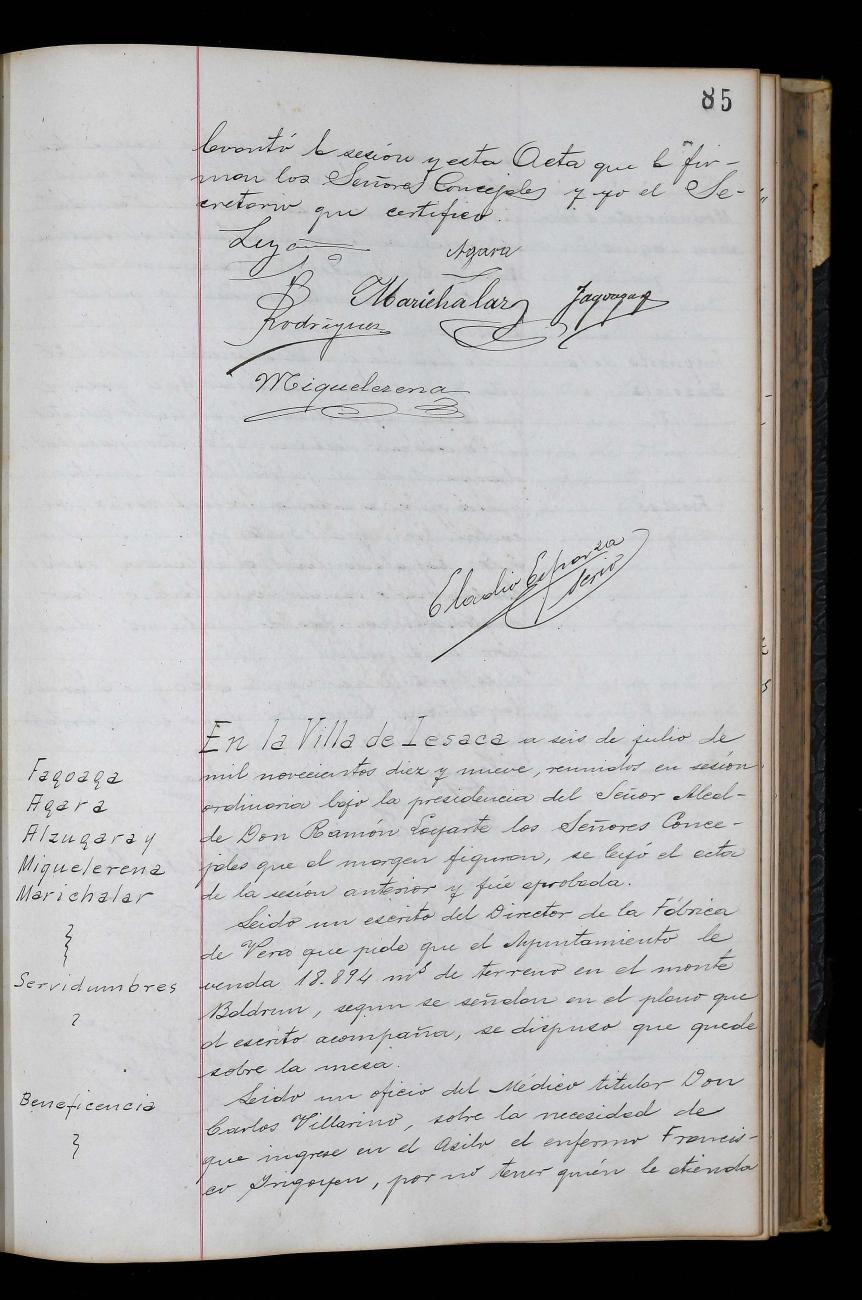 85
levantó la sesión y esta Acta que la fir-
man los Señores Concejales y yo el Se-
cretario que certifico.
Agara
Rodriguez Marichalar Fagoaga
Miquelerena
Eladio Esparza
Scrio
En la Villa de Lesaca a seis de julio de
mil novecientos diez y nueve, reunidos en sesión
ordinaria bajo la presidencia del Señor Alcal-
de Don Ramón Loyarte los Señores Conce-
jales que al margen figuran, se leyó el acta
de la sesión anterior y fué aprobada.
Fagoaga
Agara
Alzugaray
Miquelerena
Marichalar
Servidumbres
Leido un escrito del Director de la Fábrica
de Vera que pide que el Ayuntamiento le
venda 18.894 ms de terreno en el monte
Baldrun, segun se señalan en el plano que
al escrito acompaña, se dispuso que quede
sobre la mesa.
Beneficencia
Leido un oficio del Médico titular Don
Carlos Villarino, sobre la necesidad de
que ingrese en el Asilo el enfermo Francis-
co Irigoyen, por no tener quién le atienda